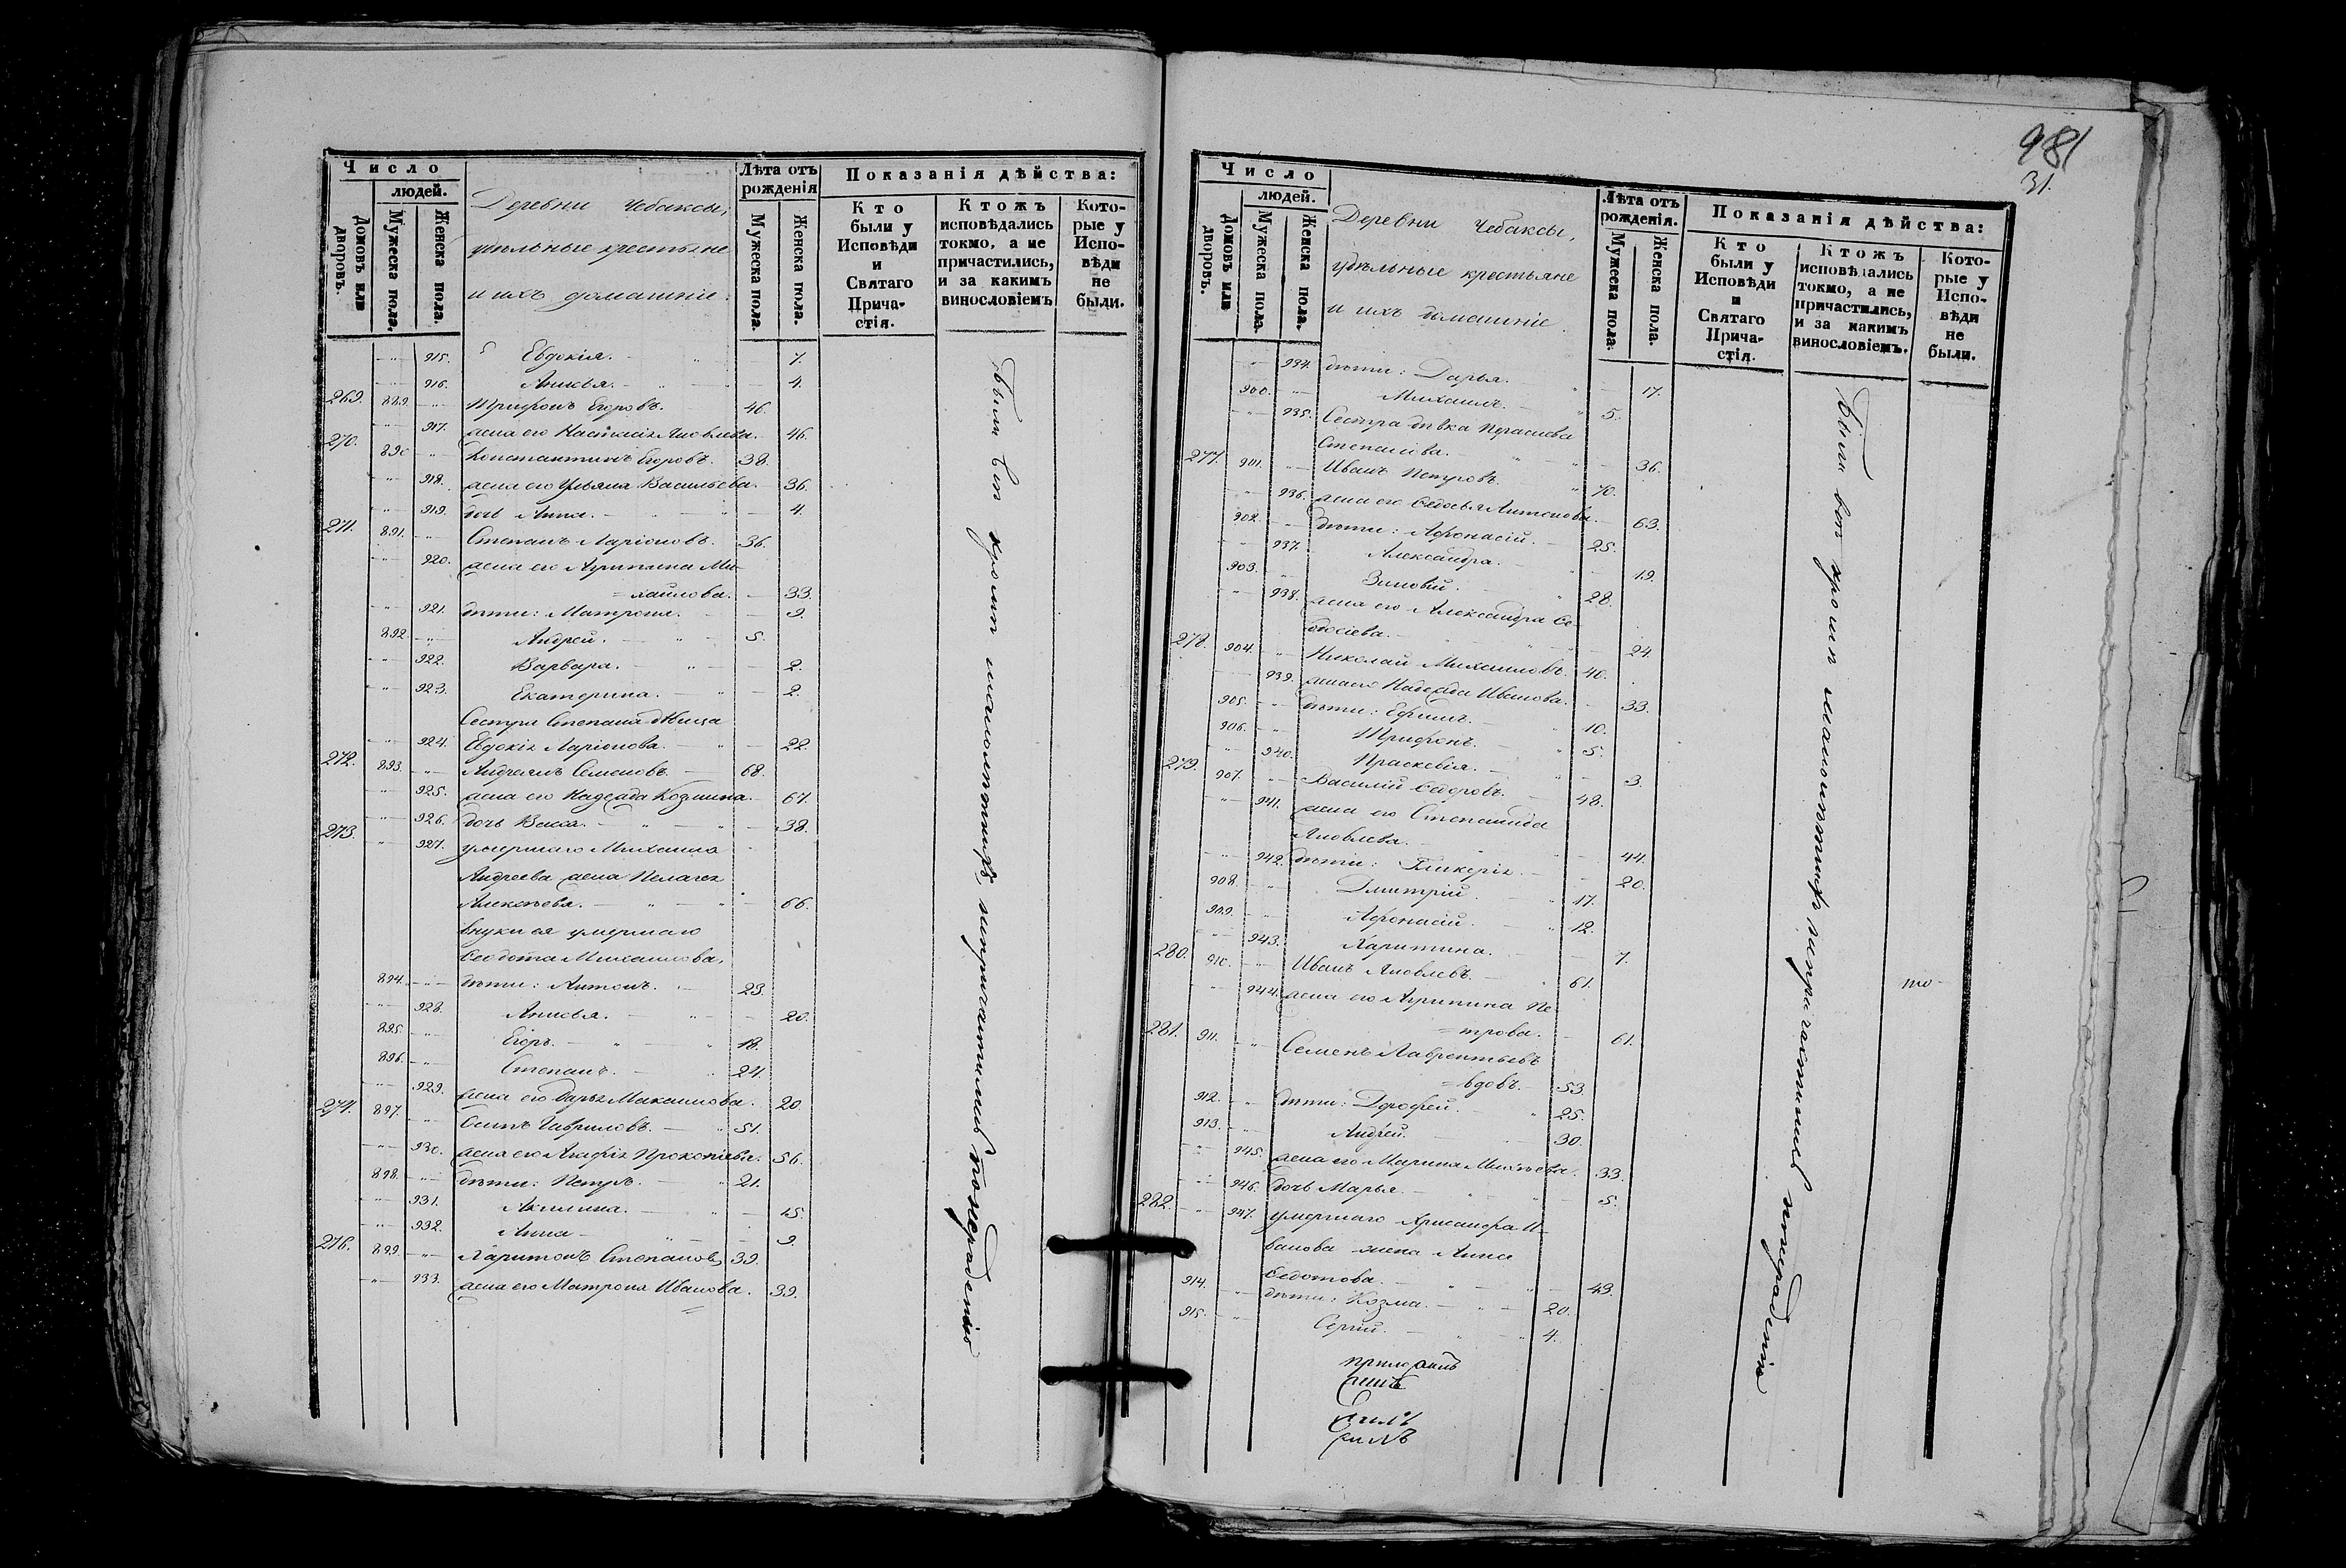 Число
людей.
Домовъ или дворовъ.
Мужеска пола.
Женска пола.
Деревни Чебаксы,
удѣльные крестьяне
и ихъ домашніе.
Лѣта отъ рожденія
Мужеска пола.
Женска пола.
Показанія дѣйства:
Кто были у Исповѣди и Святаго Прича-стія.
Ктожъ исповѣдались токмо, а не причастились, и за какимъ винословіемъ
Кото-рые у Испо-вѣди не были.
915. Евдокія. 7.
916. Анисья. 4.
269. 889. Трифонъ Егоровъ. 46.
917. жена его Настасія Яковлева. 46.
270. 890. Константинъ Егоровъ. 38.
918. жена его Ульяна Васильева. 36.
919. дочь Анна. 4.
271. 891. Степанъ Ларіоновъ. 36.
920. жена его Агрипина Ми-
хайлова. 33.
921. дѣти: Матрона. 9.
892. Андрей. 5.
922. Варвара. 2.
923. Екатерина. 2.
Сестра Степана дѣвица
924. Евдокія Ларіонова. 22.
272. 893. Андреянъ Семеновъ. 68.
925. жена его Надежда Козмина. 67.
926. дочь Васса. 38.
273. 927. умершаго Михаила
Андреева жена Пелагея
Алексѣева. 66.
внуки ея умершаго
Ѳеодота Михаилова,
894. дѣти: Антонъ. 23.
928. Анисья. 20.
895. Егоръ. 18.
896. Степанъ. 21.
929. жена его Дарья Михаилова. 20.
274. 897. Осипъ Гавриловъ. 51.
930. жена его Агафія Прокопіева. 56.
898. дѣти: Петръ. 21.
931. Акилина. 15.
932. Анна 9.
276. 899. Харитонъ Степановъ 39.
933. жена его Матрона Иванова. 39.
Были всѣ кромѣ малолѣтнихъ, непричастились по нерадѣнію
981
31.
Число
людей.
Домовъ или дворовъ.
Мужеска пола.
Женска пола.
Деревни Чебаксы,
удѣльные крестьяне
и ихъ домашніе.
Лѣта отъ рожденія.
Мужеска пола.
Женска пола.
Показанія дѣйства:
Кто были у Исповѣди и Святаго Прича-стія.
Ктожъ исповѣдались токмо, а не причастились, и за какимъ винословіемъ.
Кото-рые у Испо-вѣди не были.
934. дѣти: Дарья. 17.
900. Михаилъ. 5.
935. Сестра дѣвка Парасиева
Степанова. 36.
277. 901. Иванъ Петровъ. 70.
936. жена его Ѳедосья Антонова. 63.
902. дѣти: Афонасій. 25.
937. Александра. 19.
903. Зиновій. 28.
938. жена его Александра Ѳе-
досіева. 24.
278. 904. Николай Михаиловъ. 40.
939. жена его Надежда Иванова. 33.
905. дѣти: Ефимъ. 10.
906. Трифонъ. 5.
940. Праскевія. 3.
279. 907. Василій Ѳедоровъ. 48.
941. жена его Степанида
Яковлева. 44.
942. дѣти: Гликерія. 20.
908. Дмитрій. 17.
909. Афонасій. 12.
943. Харитина. 7.
280. 910. Иванъ Яковлевъ. 61.
944. жена его Агрипина Пе
трова. 61.
281. 911. Семенъ Лаврентьевъ
вдовъ. 53.
912. дѣти: Дорофей. 25.
913. Андрей. 30.
945. жена его Марина 33.
946. дочь Марья. 5.
282. 947. умершаго Хрисанфа И-
ванова жена Анна
Ѳедотова. 43.
914. дѣти: Козма. 20.
915. Сергій. 4.
Были всѣ кромѣ малолѣтнихъ, непричастились по нерадѣнію